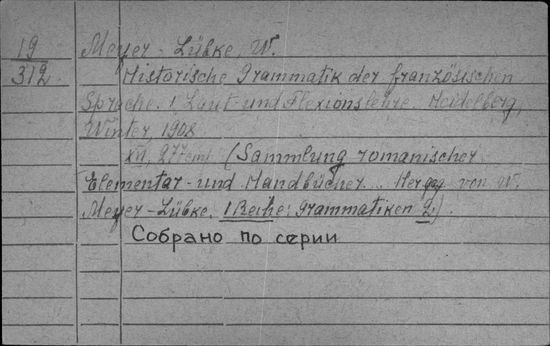 19
312
Meyer-Lübke, W.
Historische Grammatik der französischen
Sprache. 1 Laut- und Flexionslehre. Heidelberg,
Winter, 1908
XVI, 277 cmt (Sammlung romanischer
Elementar- und Handbücher... Herzg von W.
Meyer-Lübke. 1 Reihe: Grammatiken 2).
Собрано по серии